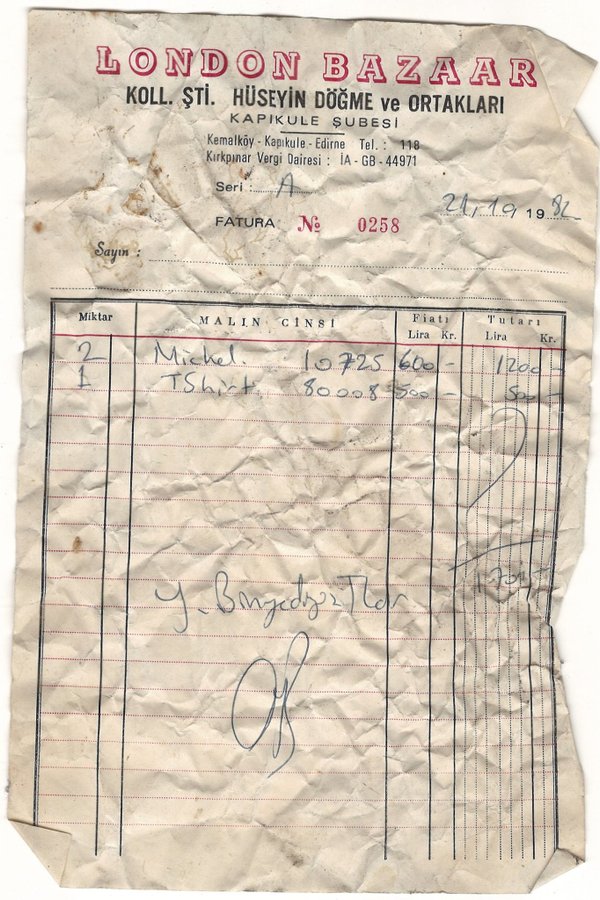 LONDON BAZAAR
KOLL. ŞTİ. HÜSEYİN DÖĞME ve ORTAKLARI
KAPIKULE ŞUBESİ
Kemalköy - Kapıkule - Edirne Tel. : 118
Kırkpınar Vergi Dairesi : İA - GB - 44971
Seri : A
21.10 1982
FATURA № 0258
Sayın :
Miktar MALIN CİNSİ Fiatı Tutarı
Lira Kr. Lira Kr.
2 Mickel. 10725 600 - 1200 -
1 TShirt. 80008 500 - 500 -